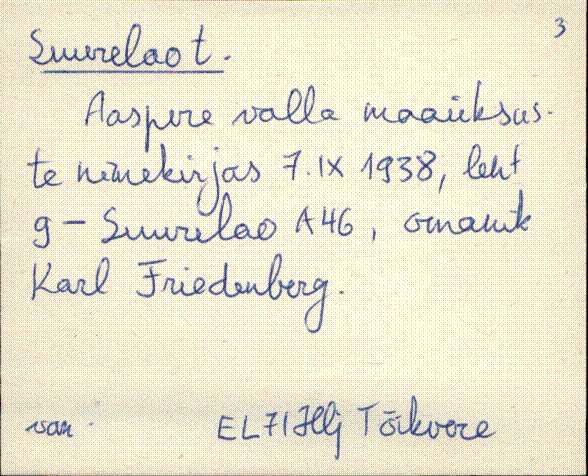 3
Suurelao t.
Aaspere valla maaüksus-
te nimekirjas 7.IX 1938, leht
9 - Suurelao A46, omanik
Karl Friedenberg.
Tõikvere